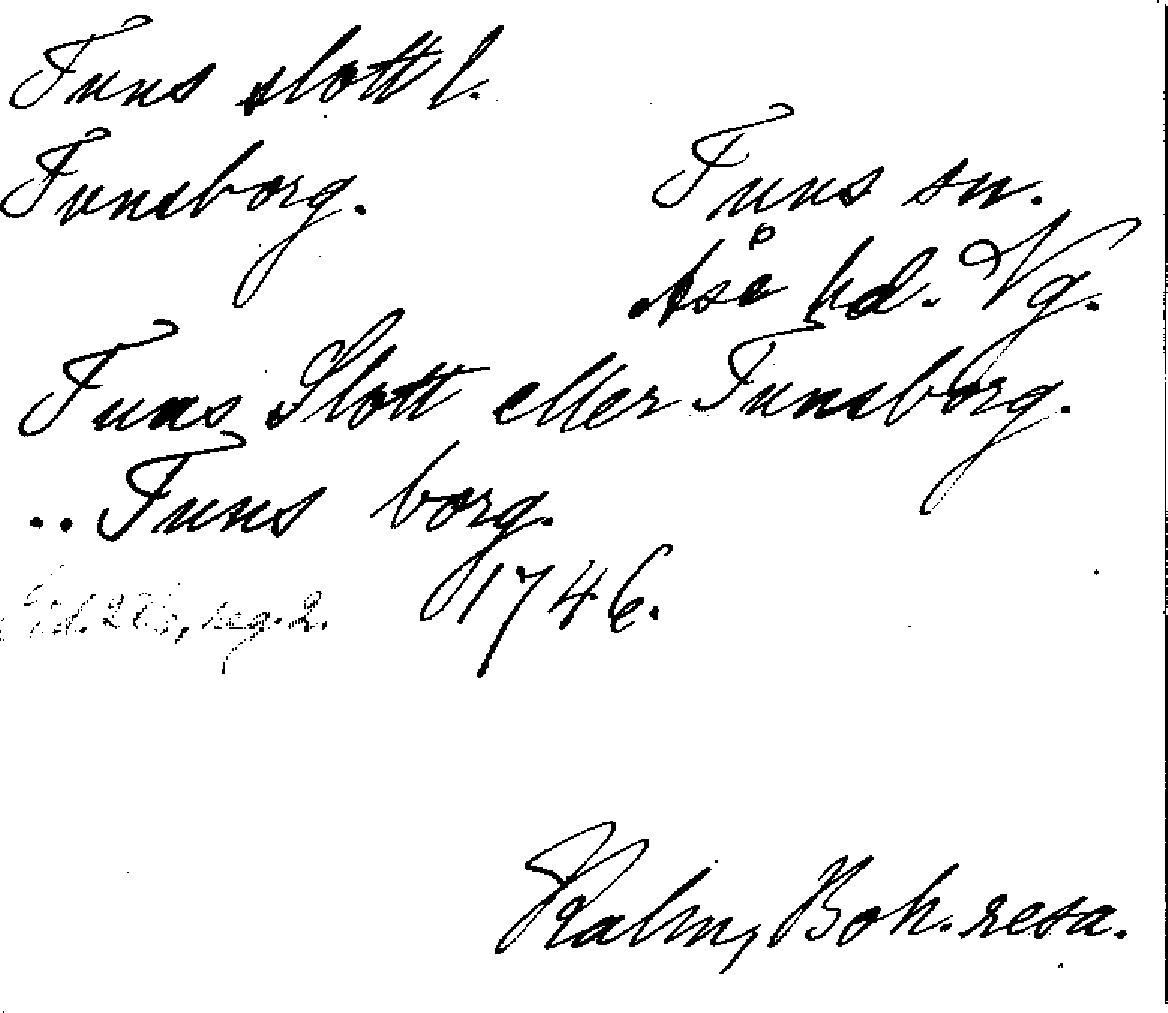 Tuns slott l.
Tunsborg.
Tuns sn.
Åse hd. Vg.
Tuns Slott eller Tunsborg.
.. Tuns borg.
1746.
reg. 2.
Kalm, Boh. resa.